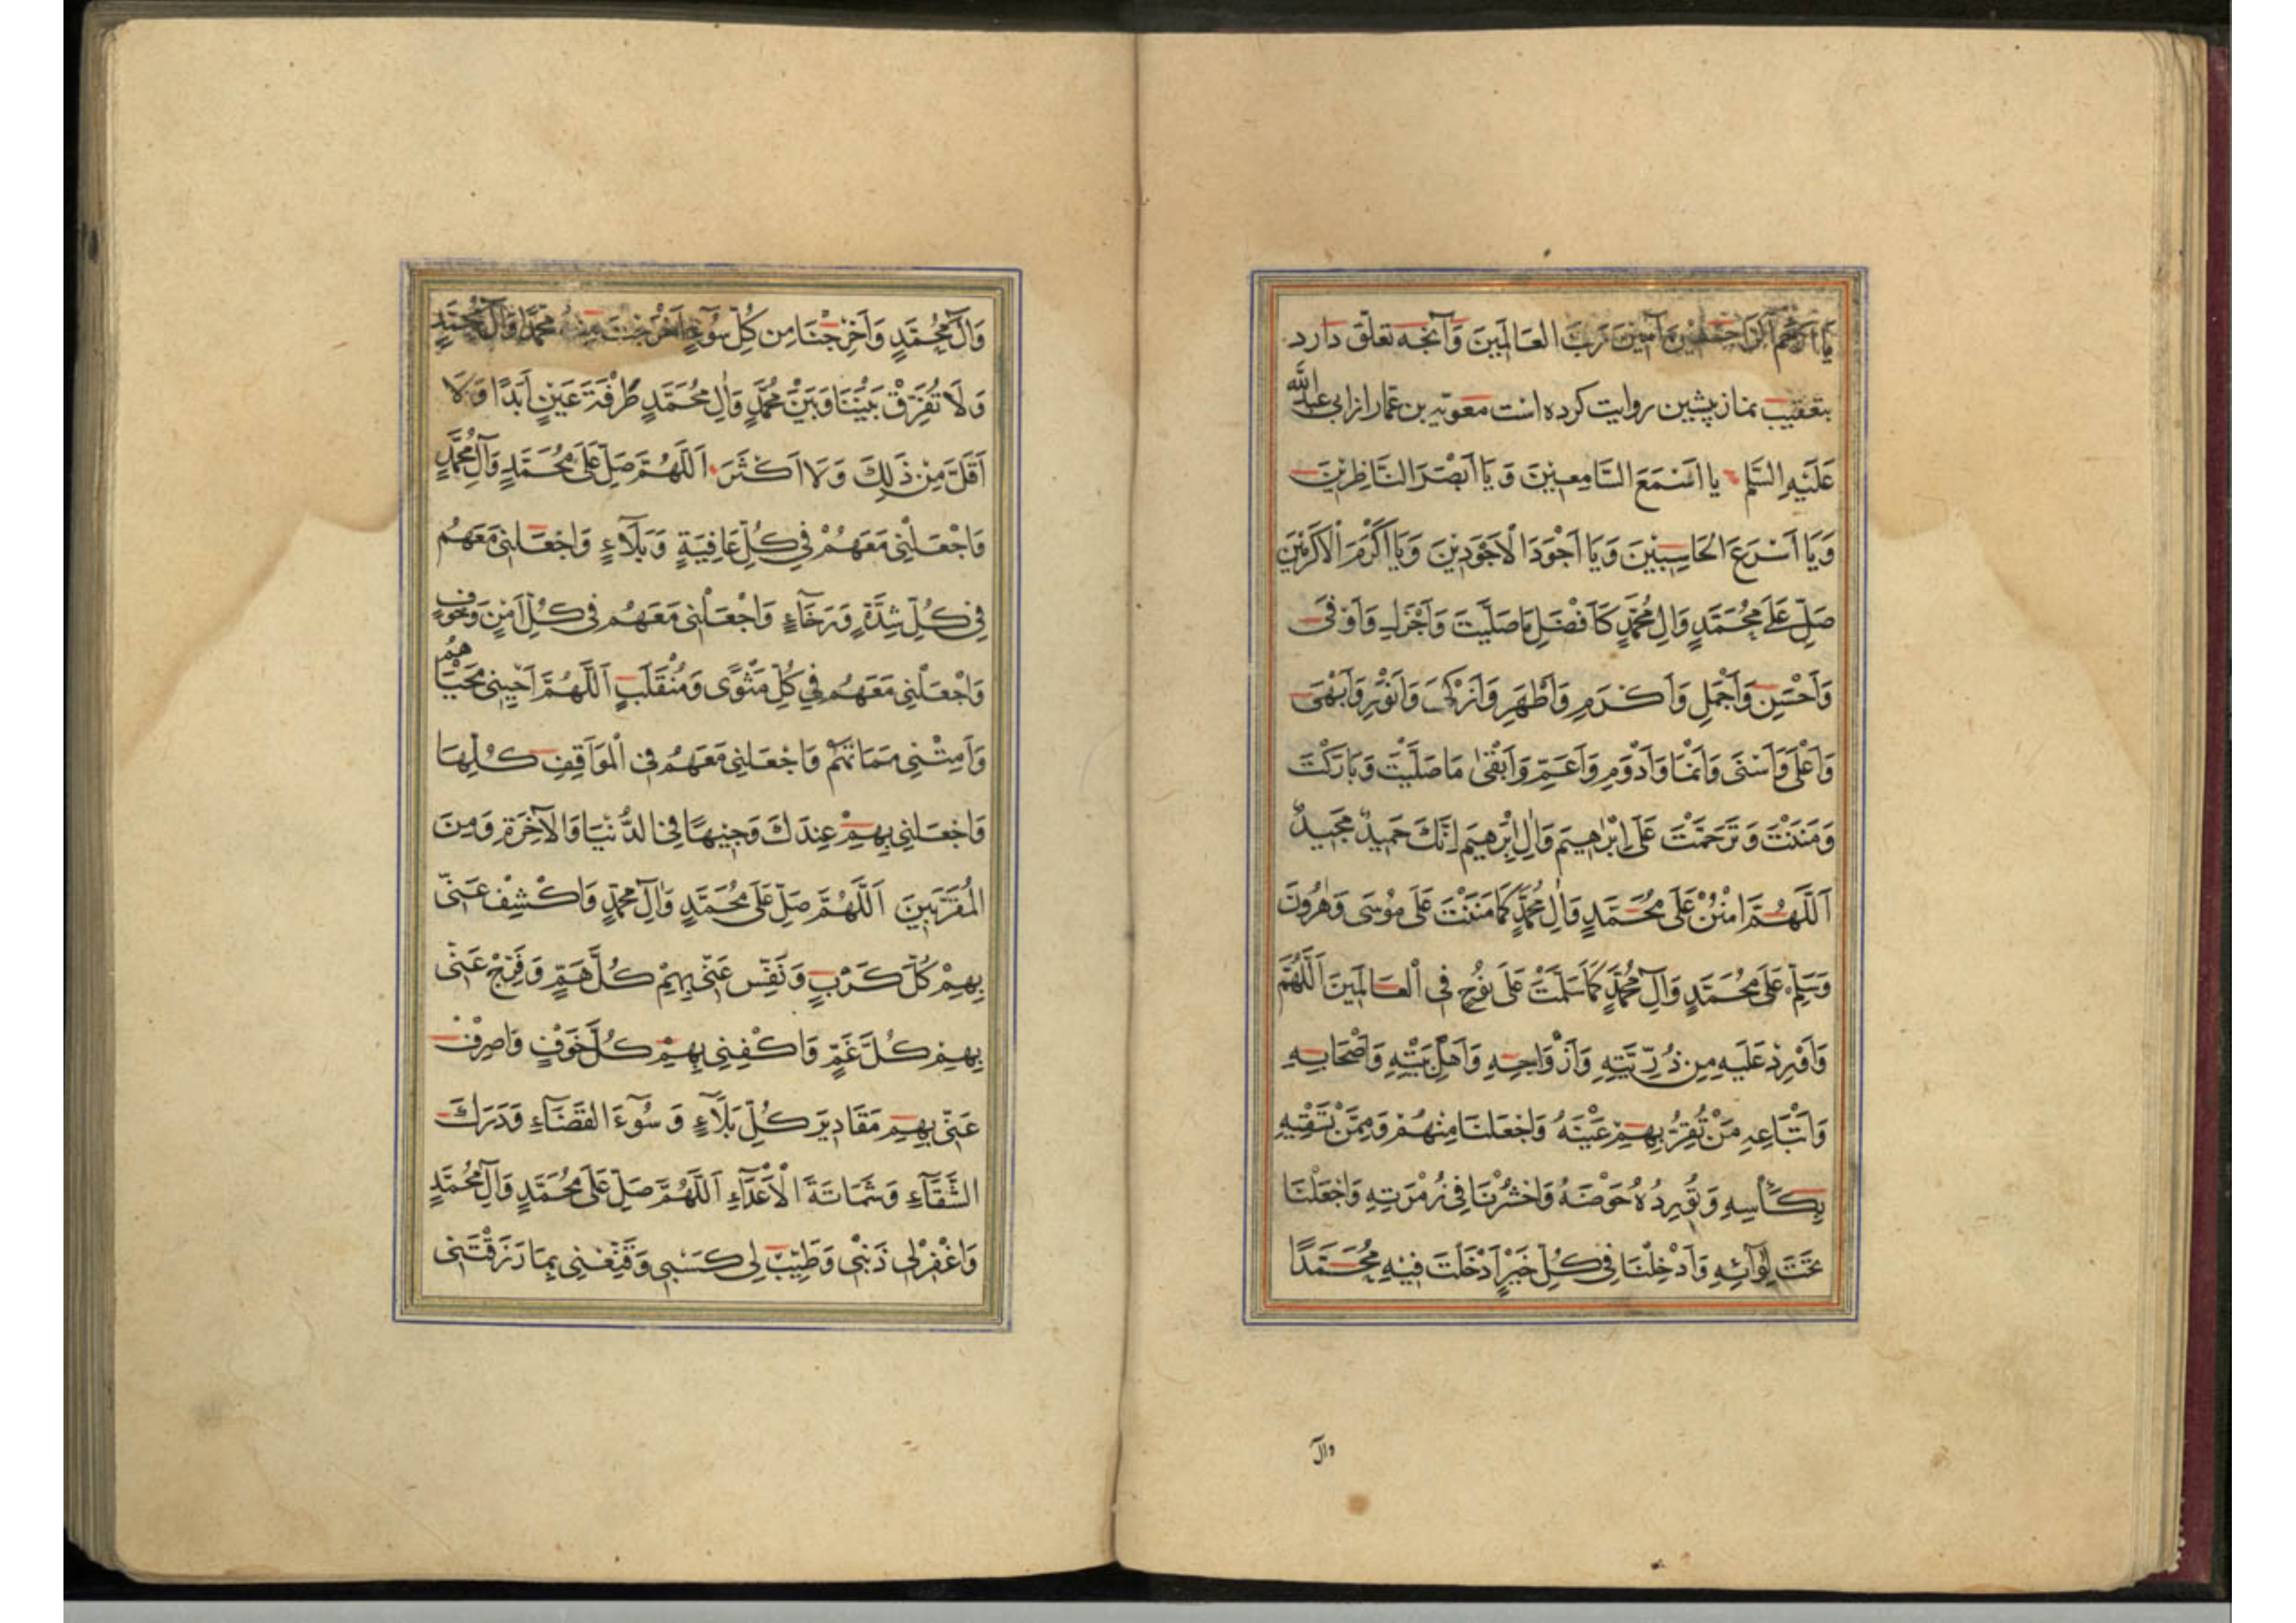 يَا اَرْحَمَ الرَّاحِمِينَ آمِينَ رَبَّ العَالَمِينَ وَآنچه تعلّق دارد
بتعقيب نماز پيشين روايت كرده است معوية بن عمّار از ابى عبد الله
عَلَيْهِ السَّلم يا اَسْمَعَ السَّامِعِينَ وَيَا اَبْصَرَ النَّاظِرِينَ
وَيَا اَسْرَعَ الحَاسِبِينَ وَيَا اَجْوَدَ الْاَجْوَدِينَ وَيَا اَكْرَمَ الْاَكْرَمِينَ
صَلِّ عَلَى مُحَمَّدٍ وَالِ مُحَمَّدٍ كَاَفْضَلِ مَا صَلَّيْتَ وَاَجْزَلِ وَاَوْفَى
وَاَحْسَنِ وَاَجْمَلِ وَاَكْرَمِ وَاَطْهَرِ وَاَزْكَى وَاَنْوَرِ وَاَبْهَى
وَاَعْلَى وَاَسْنَى وَاَنْمَا وَاَدْوَمِ وَاَعَمِّ وَاَبْقَى مَا صَلَّيْتَ وَبَارَكْتَ
وَمَنَنْتَ وَتَرَحَّمْتَ عَلَى اِبْرَاهِيمَ وَالِ اِبْرٰهِيمَ اِنَّكَ حَمِيدٌ مَجِيدٌ
اَللَّهُمَّ امْنُنْ عَلَى مُحَمَّدٍ وَالِ مُحَمَّدٍ كَمَا مَنَنْتَ عَلَى مُوسَى وَهٰرُونَ
وَسَلِّمْ عَلَى مُحَمَّدٍ وَآلِ مُحَمَّدٍ كَمَا سَلَّمْتَ عَلَى نُوحٍ فِى الْعَالَمِينَ اَللَّهُمَّ
وَاَوْرِدْ عَلَيْهِ مِنْ ذُرِّيَّتِهِ وَاَزْوَاجِهِ وَاَهْلِ بَيْتِهِ وَاَصْحَابِهِ
وَاَتْبَاعِهِ مَنْ تُقِرُّ بِهِمْ عَيْنَهُ وَاجْعَلْنَا مِنْهُمْ وَمِمَّنْ تَسْقِيهِ
بِكَأْسِهِ وَتُورِدُهُ حَوْضَهُ وَاحْشُرْنَا فِى زُمْرَتِهِ وَاجْعَلْنَا
تَحْتَ لِوَآئِهِ وَاَدْخِلْنَا فِى كُلِّ خَيْرٍ اَدْخَلْتَ فِيهِ مُحَمَّدًا
وآل
وَآلَ مُحَمَّدٍ وَاَخْرِجْنَا مِن كُلِّ سُوٓءٍ اَخْرَجْتَ مِنْهُ مُحَمَّدًا وَآلَ مُحَمَّدٍ
وَلَا تُفَرِّقْ بَيْنَنَا وَبَيْنَ مُحَمَّدٍ وَاٰلِ مُحَمَّدٍ طَرْفَةَ عَيْنٍ اَبَدًا وَلَا
اَقَلَّ مِنْ ذَلِكَ وَلَا اَكْثَرَ اَللَّهُمَّ صَلِّ عَلَى مُحَمَّدٍ وَآلِ مُحَمَّدٍ
وَاجْعَلْنِى مَعَهُمْ فِى كُلِّ عَافِيَةٍ وَبَلَآءٍ وَاجْعَلْنِى مَعَهُم
فِى كُلِّ شِدَّةٍ وَرَخَآءٍ وَاجْعَلْنِى مَعَهُم فِى كُلِّ اَمْنٍ وَخَوْفٍ
وَاجْعَلْنِى مَعَهُم فِى كُلِّ مَثْوًى وَمُنْقَلَبٍ اَللَّهُمَّ اَحْيِنِى مَحْيَاهُم
وَاَمِتْنِى مَمَاتَهُمْ وَاجْعَلْنِى مَعَهُم فِى الْمَوَاقِفِ كُلِّهَا
وَاجْعَلْنِى بِهِمْ عِنْدَكَ وَجِيهًا فِى الدُّنْيَا وَالْآخِرَةِ وَمِنَ
المُقَرَّبِينَ اَللَّهُمَّ صَلِّ عَلَى مُحَمَّدٍ وَاٰلِ مُحَمَّدٍ وَاكْشِفْ عَنِّى
بِهِمْ كُلَّ كَرْبٍ وَنَفِّسْ عَنِّى بِهِمْ كُلَّ هَمٍّ وَفَرِّجْ عَنِّى
بِهِمْ كُلَّ غَمٍّ وَاكْفِنِى بِهِمْ كُلَّ خَوْفٍ وَاصْرِفْ
عَنِّى بِهِمْ مَقَادِيرَ كُلِّ بَلَآءٍ وَسُوٓءَ القَضَآءِ وَدَرَكَ
الشَّقَآءِ وَشَمَاتَةَ الْاَعْدَآءِ اَللَّهُمَّ صَلِّ عَلَى مُحَمَّدٍ وَآلِ مُحَمَّدٍ
وَاغْفِرْ لِى ذَنْبِى وَطَيِّبْ لِى كَسْبِى وَقَنِّعْنِى بِمَا رَزَقْتَنِى